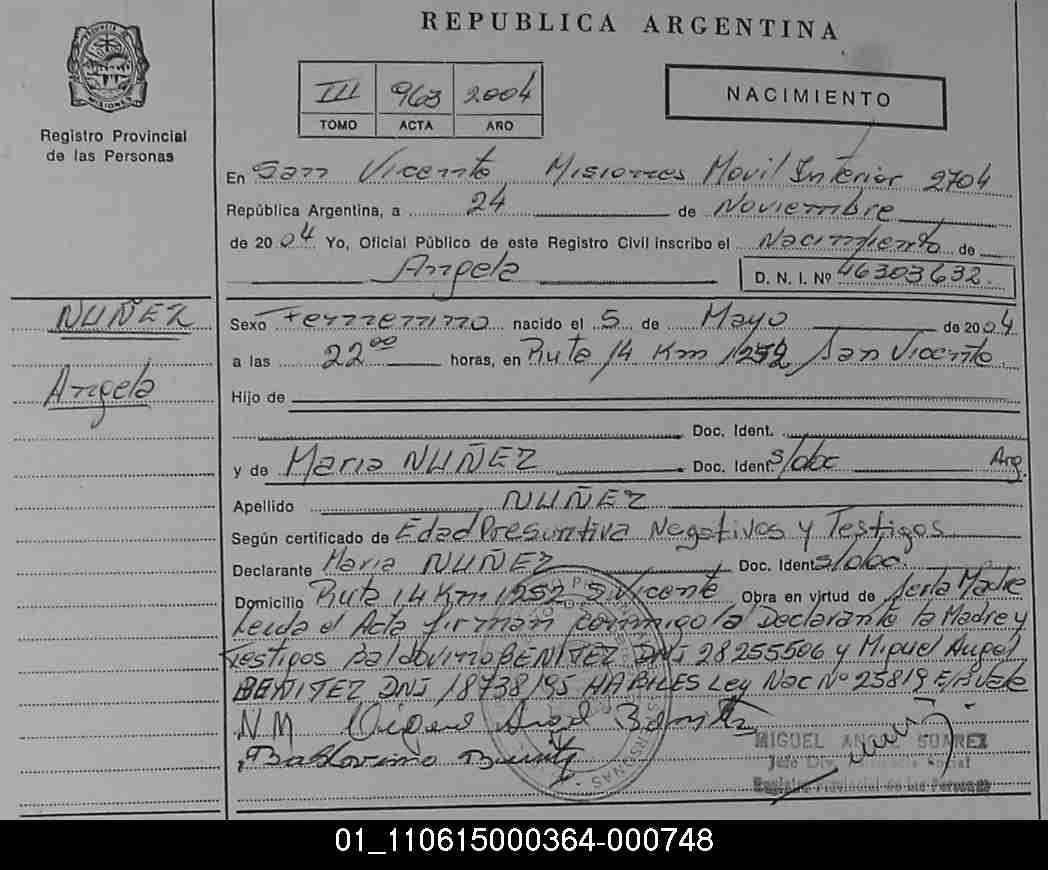 REPUBLICA ARGENTINA
PROVINCIA DE MISIONES
Registro Provincial
de las Personas
III 963 2004
TOMO ACTA AÑO
NACIMIENTO
En San Vicente Misiones Movil Interior 2704
República Argentina, a 24 de Noviembre
de 2004 Yo, Oficial Público de este Registro Civil inscribo el Nacimiento de
Angela D. N. I. Nº 46303632
NUÑEZ
Angela
Sexo Femenino nacido el 5 de Mayo de 2004
a las 22 00 horas, en Ruta 14 Km 1252 San Vicente
Hijo de
Doc. Ident.
y de Maria NUÑEZ Doc. Ident. s/doc Arg.
Apellido NUÑEZ
Según certificado de Edad Presuntiva Negativos y Testigos
Declarante Maria NUÑEZ Doc. Ident. s/doc.
Domicilio Ruta 14 Km 1252 S. Vicente Obra en virtud de ser la Madre
Leida el Acta firman conmigo la Declarante la Madre y
testigos Baldovino BENITEZ DNI 28255506 y Miguel Angel
BENITEZ DNI 18738195 HABILES Ley Nac Nº 25819
NM Miguel Angel Benitez
Baldovino Benitez
MIGUEL ANGEL SUAREZ
Jefe Div. Social
Registro Provincial de las Personas
01_110615000364-000748